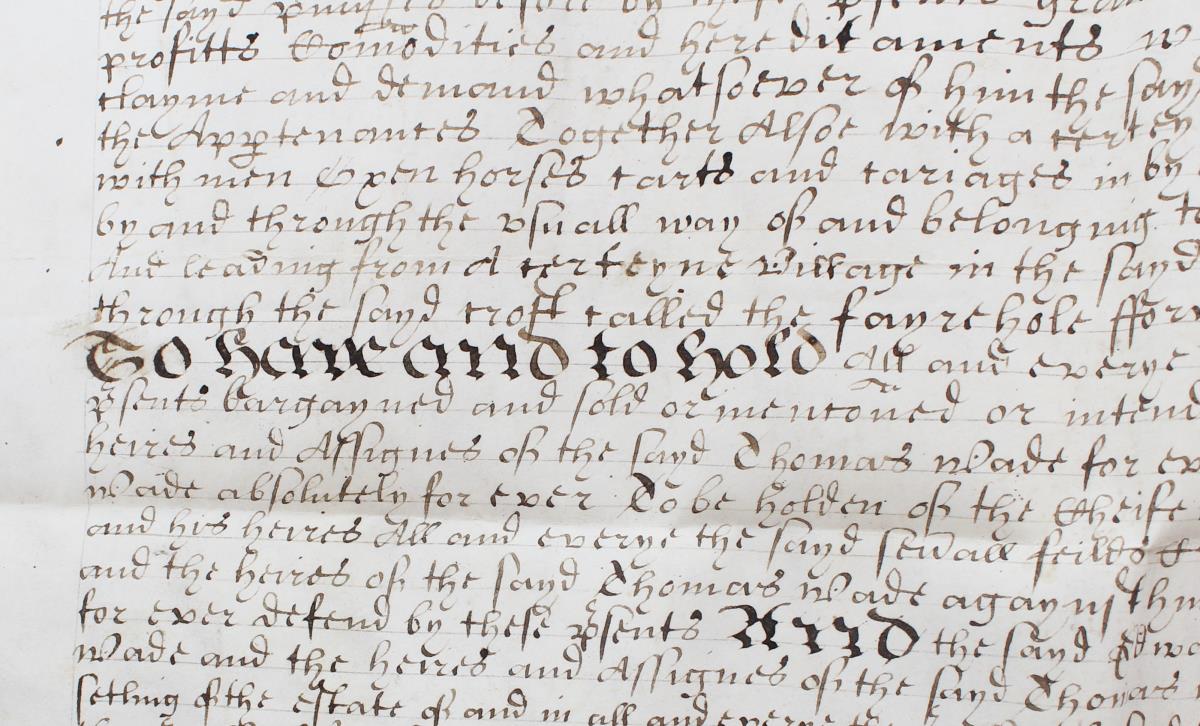 the sayd before by these psents
profitts Comodities and hereditaments
clayme and demaund whatsoever of him the sayd
the Apptenances Together Alsoe with a certey
with men Oxen horses carts and cariages in by
by and through the vsuall way of and belonging
And leading from A certeyne Village in the sayd
through the sayd croft called the fayrehole
To have and to hold All and everye
psents bargayned and sold or menconed or intend
heires and Assignes of the sayd Thomas Wade for ev
Wade absolutely for ever To be holden of the Cheife
and his heires All and everye the sayd sevall feilds
and the heires of the sayd Thomas Wade agaynst hym
for ever defend by these psents And the sayd Edwa
Wade and the heires and Assignes of the sayd Thomas
setling of the estate of and in all and everye the